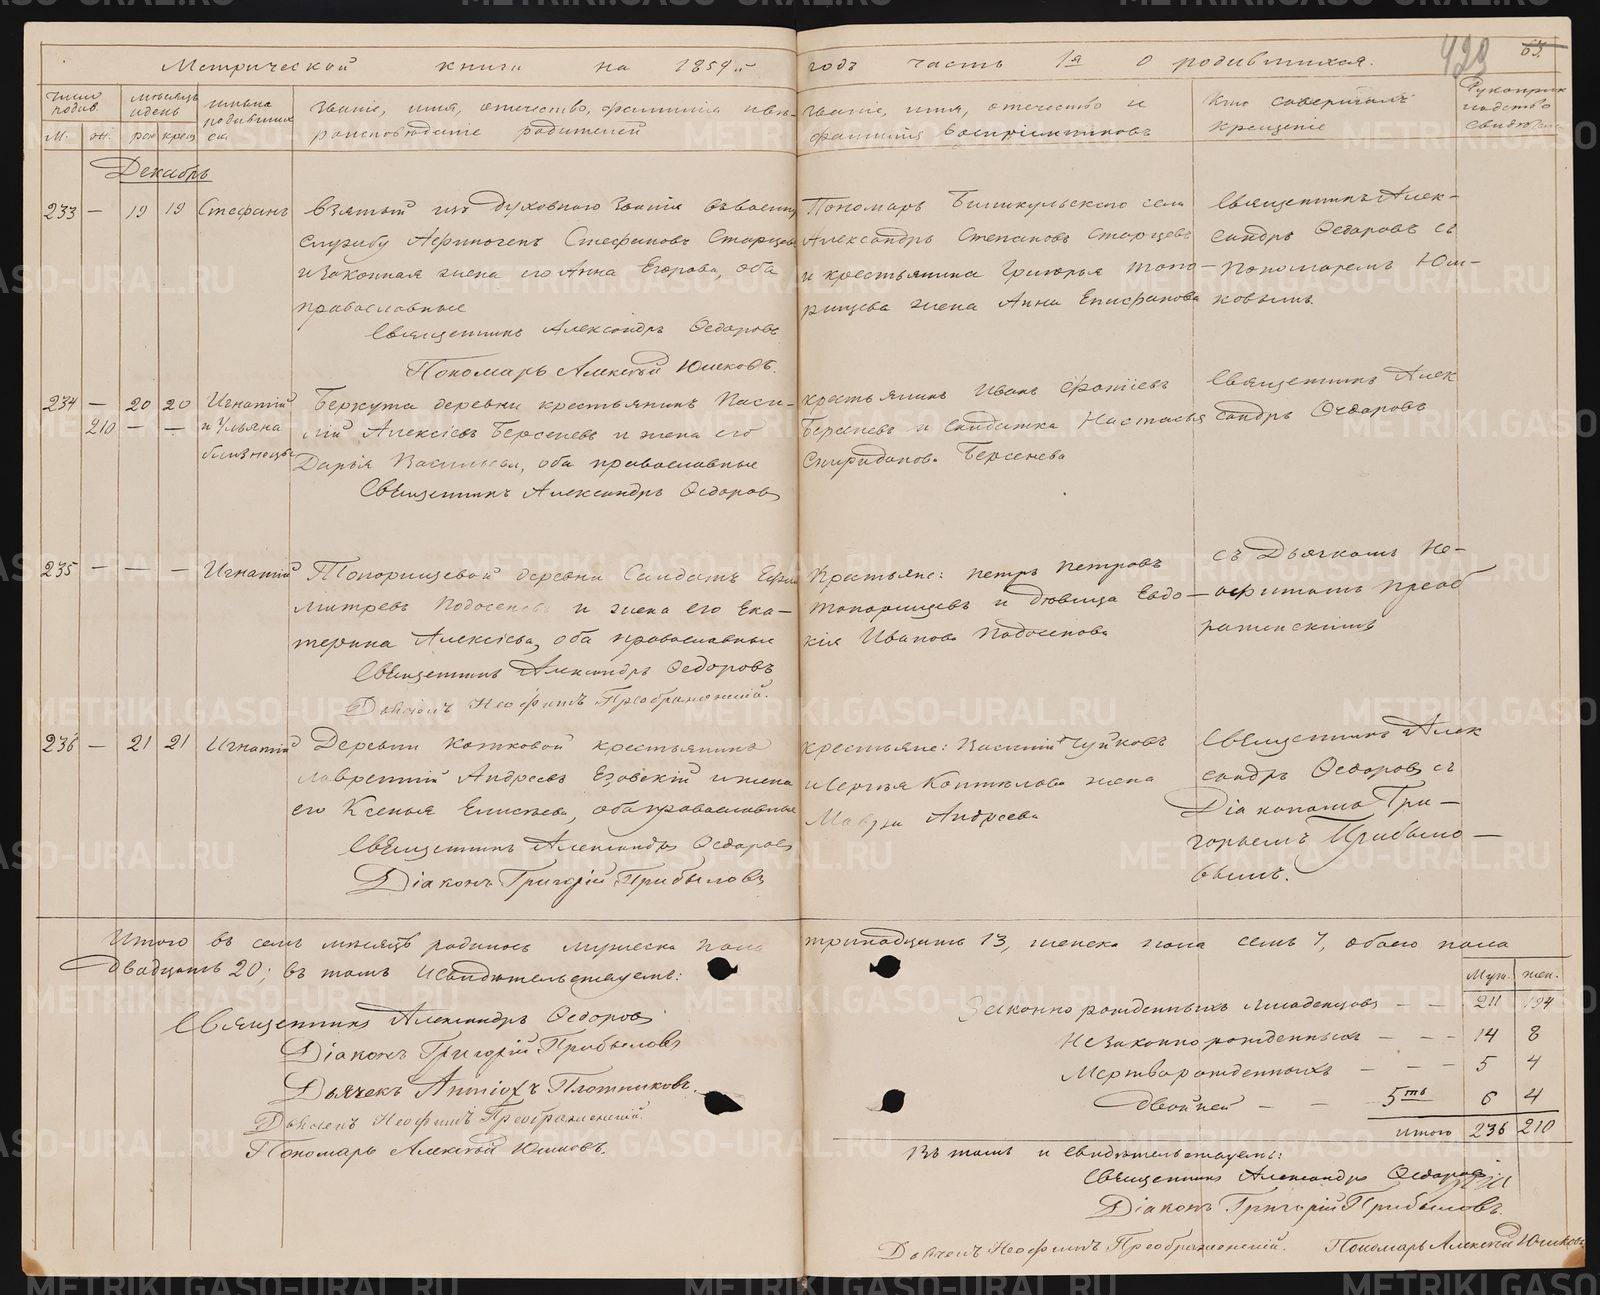 Метрической книги на 1859.й годъ часть 1я о родившихся.
429
63.
число родив
м. ж.
мѣсяцъ и день
рож крещ
имена родившихся
Званіе, имя, отечество, фамилія и вѣроисповѣданіе родителей
Званіе, имя, отечество и фамилія воспріемниковъ
Кто совершалъ крещеніе
Рукоприкладство свидѣтел
Декабрь
233 — 19 19 Стефанъ
Взятый изъ духовнаго званія въ военную
службу Афиногенъ Стефановъ Старцевъ
и законная жена его Анна Егорова, оба
православные
Священникъ Александръ Ѳедоровъ
Пономарь Алексѣй Юшковъ.
Пономарь села
Александръ Степановъ Старцевъ
и крестьянина Григорья Топо-
рищева жена Анна Епифанова
Священникъ Алек-
сандръ Ѳедоровъ съ
Пономаремъ Юш-
ковымъ.
234 — 20 20 Игнатій
210 — — и Ульяна
близнецы
Беркута деревни крестьянинъ Васи-
лій Алексѣевъ Берсеневъ и жена его
Дарья Васильева, оба православные
Священникъ Александръ Ѳедоровъ
крестьянинъ Иванъ
Берсеневъ и Солдатка Настасья
Спиридонова Берсенева
Священникъ Алек
сандръ Ѳедоровъ
235 — — — Игнатій
Топорищевой деревни Солдатъ
митревъ Подосеновъ и жена его Ека-
терина Алексѣева, оба православные
Священникъ Александръ Ѳедоровъ
Дьячекъ Неофитъ Преображенскій.
Крестьяне: Петръ Петровъ
Топорищевъ и дѣвица Евдо-
кія Иванова Подосенова
съ Дьячкомъ Не-
офитомъ Преоб
раженскимъ
236 — 21 21 Игнатій
Деревни Котковой крестьянинъ
Лаврентій Андреевъ Езовскій и жена
его Ксенья Елисѣева, оба православные
Священникъ Александръ Ѳедоровъ
Діаконъ Григорій Прибыловъ
крестьяне: Василій Чуйковъ
и Сергѣя жена
Мавра Андреева
Священникъ Алек
сандръ Ѳедоровъ съ
Діакономъ Гри-
горьемъ Прибыло-
вымъ.
Итого въ семъ мѣсяцѣ родилось мужеска пола тринадцать 13, женска пола семь 7, обоего пола
двадцать 20; въ томъ и свидѣтельствуемъ:
Священникъ Александръ Ѳедоровъ
Діаконъ Григорій Прибыловъ
Дьячекъ Антіохъ Плотниковъ.
Дьячекъ Неофитъ Преображенскій.
Пономарь Алексѣй Юшковъ.
Муж. жен.
Законно рожденныхъ младенцовъ — — 211 194
Незаконно рожденныхъ — — 14 8
Мертворожденныхъ — — — 5 4
Двойней — — 5ть 6 4
Итого 236 210
Въ томъ и свидѣтельствуемъ:
Священникъ Александръ Ѳедоровъ
Діаконъ Григорій Прибыловъ.
Дьячекъ Неофитъ Преображенскій. Пономарь Алексѣй Юшковъ
METRIKI.GASO-URAL.RU